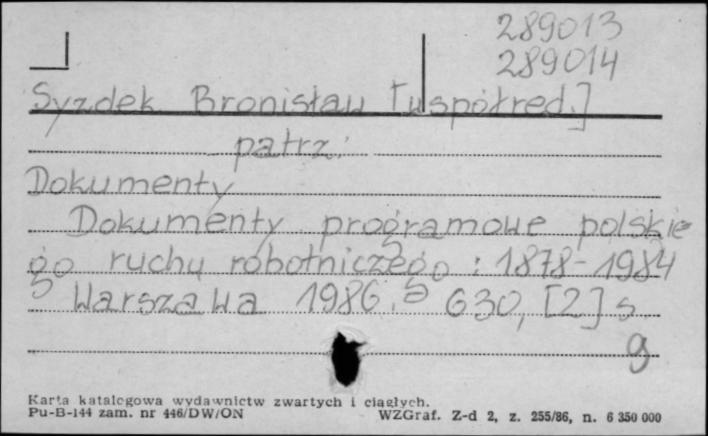 289013
289014
Syzdek Bronisław [współred.]
patrz:
Dokumenty
Dokumenty programowe polskie
go ruchu robotniczego : 1878-1984
Warszawa 1986. 630, [2] s
g
Karta katalogowa wydawnictw zwartych i ciągłych.
Pu-B-144 zam. nr 446/DW/ON WZGraf. Z-d 2, z. 255/86, n. 6 350 000